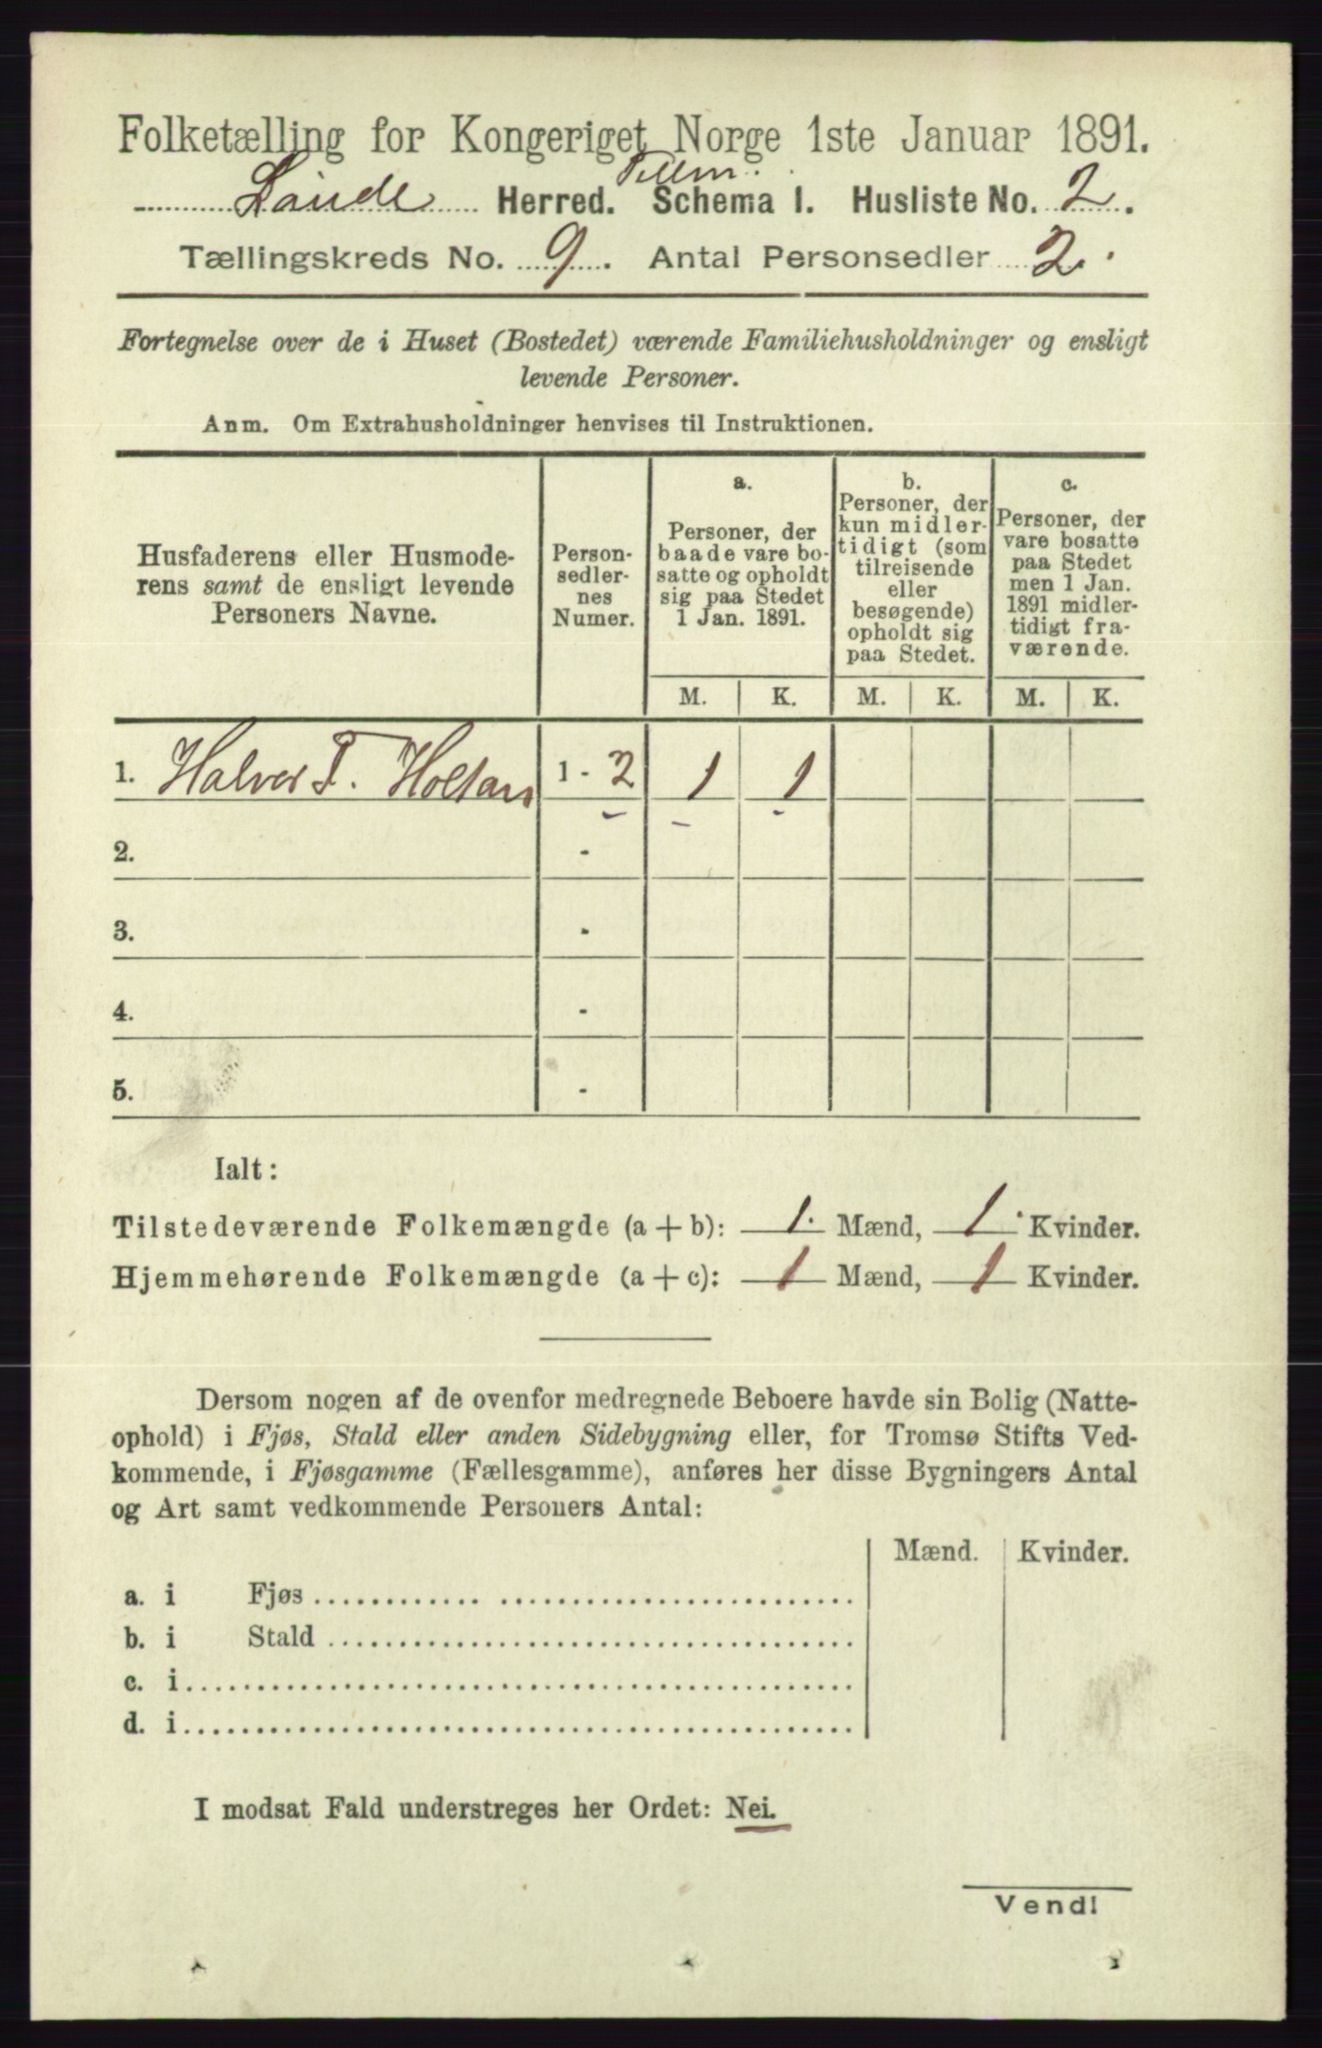 Folketælling for Kongeriget Norge 1ste Januar 1891.
Laude Herred. Schema I. Husliste No. 2.
Tællingskreds No. 9. Antal Personsedler 2.
Fortegnelse over de i Huset (Bostedet) værende Familiehusholdninger og ensligt
levende Personer.
Anm. Om Extrahusholdninger henvises til Instruktionen.
Husfaderens eller Husmode-
rens samt de ensligt levende
Personers Navne.
Person-
sedler-
nes
Numer.
a.
Personer, der
baade vare bo-
satte og opholdt
sig paa Stedet
1 Jan. 1891.
b.
Personer, der
kun midler-
tidigt (som
tilreisende
eller
besøgende)
opholdt sig
paa Stedet.
c.
Personer, der
vare bosatte
paa Stedet
men 1 Jan.
1891 midler-
tidigt fra-
værende.
M. K. M. K. M. K.
1. Halvor T. Holtan 1 - 2 1 1
2. -
3. -
4. -
5. -
Ialt:
Tilstedeværende Folkemængde (a + b): 1. Mænd, 1. Kvinder.
Hjemmehørende Folkemængde (a + c): 1 Mænd, 1 Kvinder.
Dersom nogen af de ovenfor medregnede Beboere havde sin Bolig (Natte-
ophold) i Fjøs, Stald eller anden Sidebygning eller, for Tromsø Stifts Ved-
kommende, i Fjøsgamme (Fællesgamme), anføres her disse Bygningers Antal
og Art samt vedkommende Personers Antal:
Mænd. Kvinder.
a. i Fjøs
b. i Stald
c. i
d. i
I modsat Fald understreges her Ordet: Nei.
Vend!